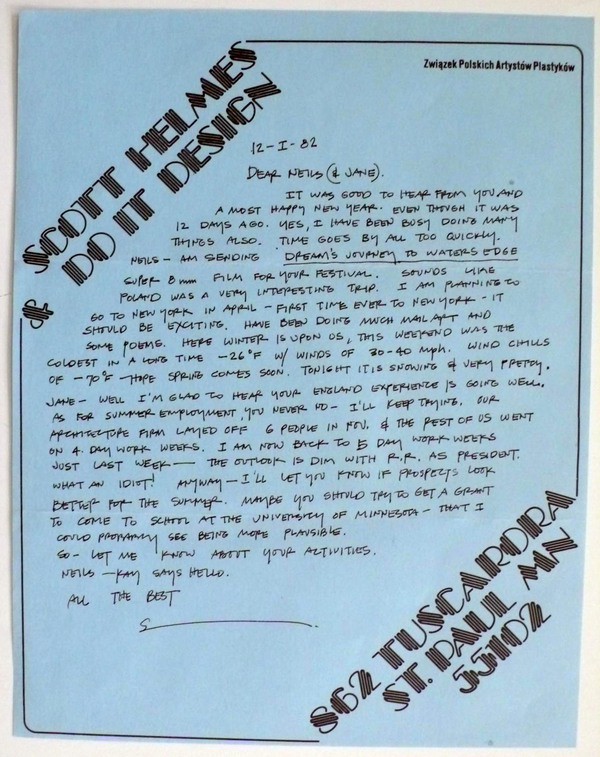 Związek Polskich Artystów Plastyków
SCOTT HELMES
& DO IT DESIGN
12-I-82
DEAR NEILS (& JANE).
IT WAS GOOD TO HEAR FROM YOU AND
A MOST HAPPY NEW YEAR. EVEN THOUGH IT WAS
12 DAYS AGO. YES, I HAVE BEEN BUSY DOING MANY
THINGS ALSO. TIME GOES BY ALL TOO QUICKLY.
NEILS - AM SENDING DREAM'S JOURNEY TO WATERS EDGE
SUPER 8mm FILM FOR YOUR FESTIVAL. SOUNDS LIKE
POLAND WAS A VERY INTERESTING TRIP. I AM PLANNING TO
GO TO NEW YORK IN APRIL - FIRST TIME EVER TO NEW YORK - IT
SHOULD BE EXCITING. HAVE BEEN DOING MUCH MAIL ART AND
SOME POEMS. HERE WINTER IS UPON US, THIS WEEKEND WAS THE
COLDEST IN A LONG TIME -26°F W/ WINDS OF 30-40 mph. WIND CHILLS
OF -70°F - HOPE SPRING COMES SOON. TONIGHT IT IS SNOWING & VERY PRETTY.
JANE - WELL I'M GLAD TO HEAR YOUR ENGLAND EXPERIENCE IS GOING WELL.
AS FOR SUMMER EMPLOYMENT, YOU NEVER NO - I'LL KEEP TRYING. OUR
ARCHITECTURE FIRM LAYED OFF 6 PEOPLE IN NOV. & THE REST OF US WENT
ON 4 DAY WORK WEEKS. I AM NOW BACK TO 5 DAY WORK WEEKS
JUST LAST WEEK — THE OUTLOOK IS DIM WITH R.R. AS PRESIDENT.
WHAT AN IDIOT! ANYWAY - I'LL LET YOU KNOW IF PROSPECTS LOOK
BETTER FOR THE SUMMER. MAYBE YOU SHOULD TRY TO GET A GRANT
TO COME TO SCHOOL AT THE UNIVERSITY OF MINNESOTA - THAT I
COULD PROBABLY SEE BEING MORE PLAUSIBLE.
SO - LET ME KNOW ABOUT YOUR ACTIVITIES.
NEILS - KAY SAYS HELLO.
ALL THE BEST
S
862 TUSCARORA
ST. PAUL MN
55102